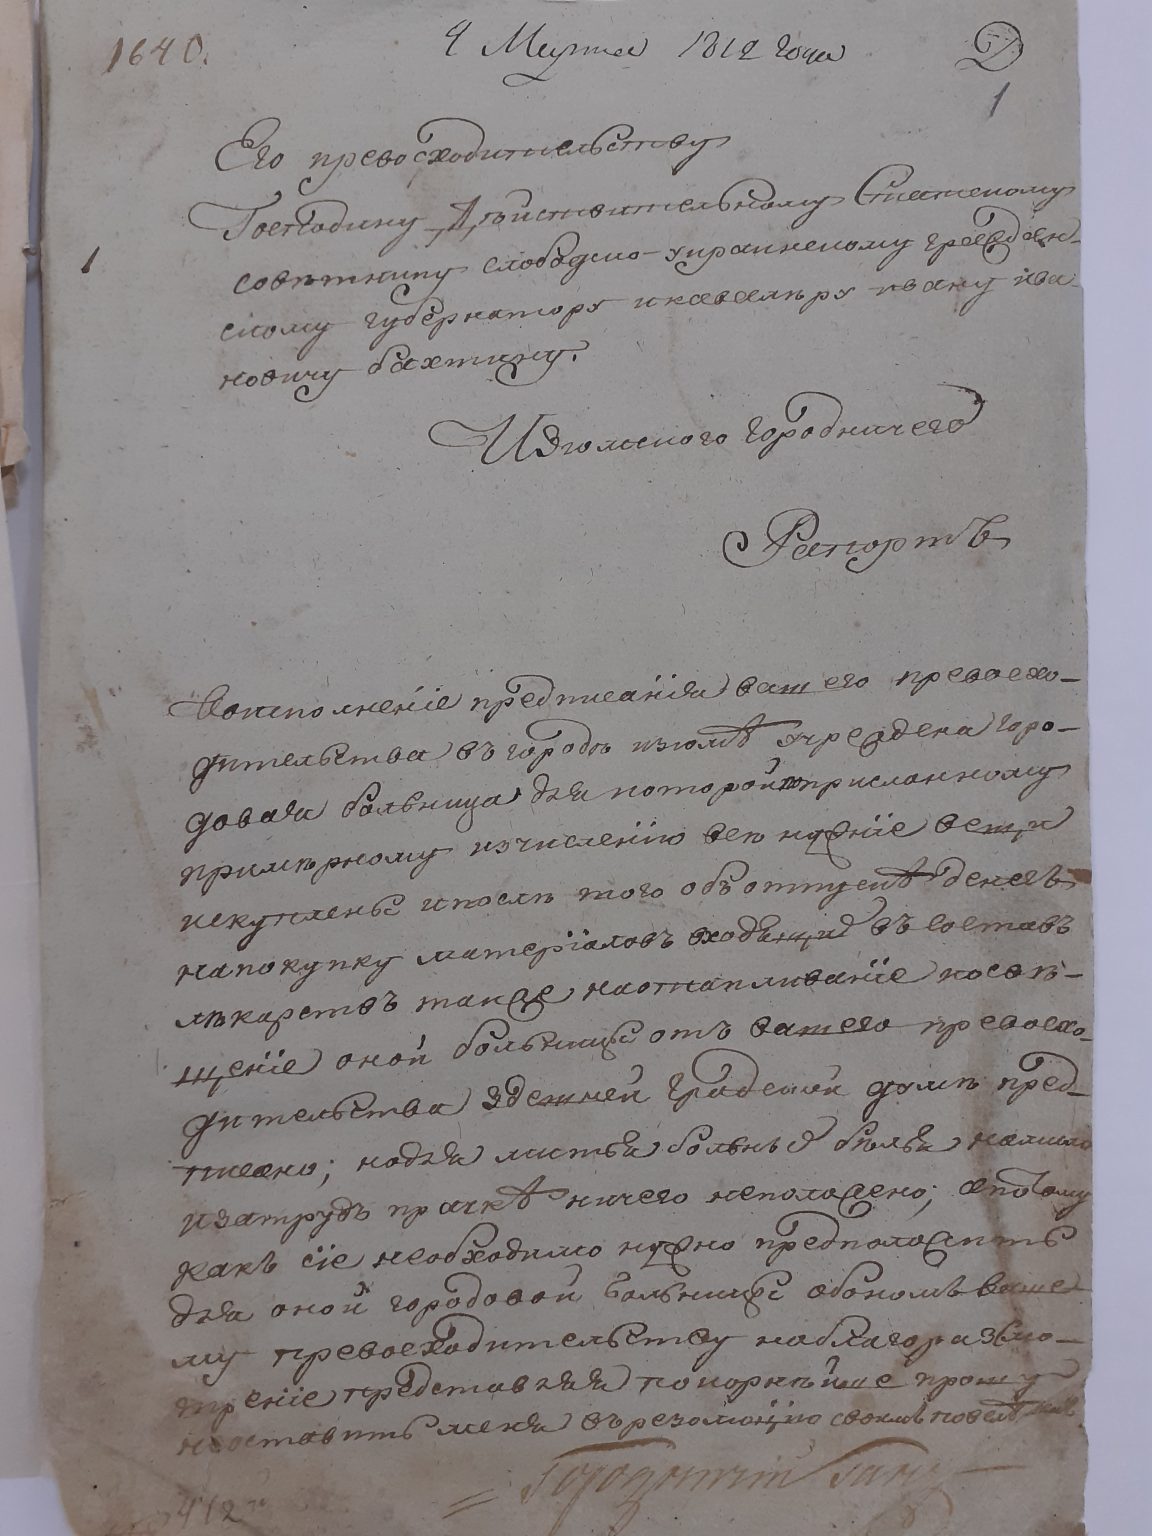 1640.
4 Марта 1812 года
1
1
Его превосходительству
Господину Дѣйствительному Статскому
совѣтнику слободско-украинскому граждан-
скому губернатору и кавалѣру ивану ива
новичу бахтину.
Изюмского городничего
Рапортъ
Воисполненіе предписанія вашего превосхо-
дительства въ городѣ изюмѣ учреждена горо-
довая больница для которой поприсланному
примѣрному изчисленію всѣ нужніе вещи
искуплены ипослѣ того объ отпускѣ денегъ
напокупку матеріаловъ входящие въ составъ
лѣкарствъ также наотапливаніе иосвѣ-
щеніе оной больницы отъ вашего превосхо-
дительства здешней Градской думѣ пред-
писано; нодля мытья больныя бѣлья намыло
изатрудъ прачкѣ ничего неположено; апотому
какъ сіе необходимо нужно предположить
для оной городовой больницы обономъ ваше
му превосходительству наблагоразсмо-
треніе представляя покорнѣйше прошу
неоставить меня върезолюцію своимъ повелѣніемъ
Городничій
412